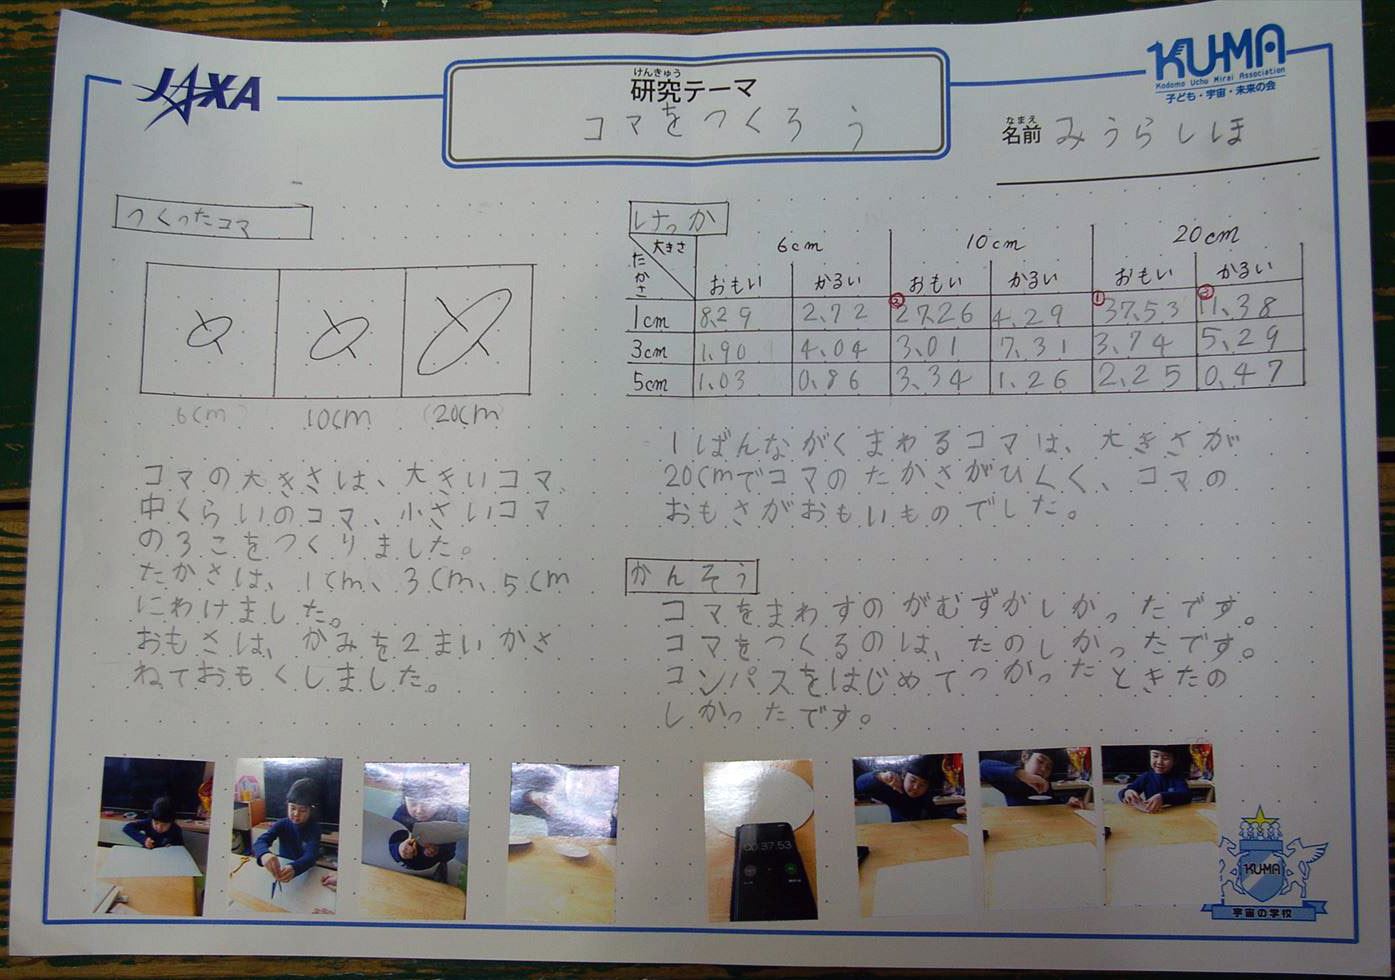 JAXA
けんきゅう
研究テーマ
コマをつくろう
KU-MA
Kodomo Uchu Mirai Association
子ども・宇宙・未来の会
なまえ
名前 みうらしほ
つくったコマ
6cm 10cm (20cm)
コマの大きさは、大きいコマ、
中くらいのコマ、小さいコマ
の3こをつくりました。
たかさは、1cm、3cm、5cm
にわけました。
おもさは、かみを2まいかさ
ねておもくしました。
けっか
大きさ 6cm 10cm 20cm
たかさ おもい かるい おもい かるい おもい かるい
② ① ③
1cm 8.29 2.72 27.26 4.29 37.53 11.38
3cm 1.90 4.04 3.01 7.31 3.74 5.29
5cm 1.03 0.86 3.34 1.26 2.25 0.47
1ばんながくまわるコマは、大きさが
20cmでコマのたかさがひくく、コマの
おもさがおもいものでした。
かんそう
コマをまわすのがむずかしかったです。
コマをつくるのは、たのしかったです。
コンパスをはじめてつかったときたの
しかったです。
00:37.53
KU-MA
宇宙の学校